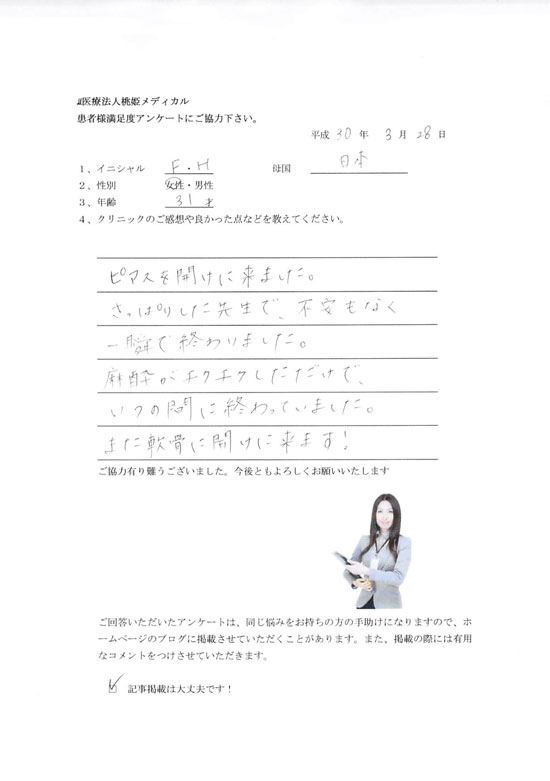 医療法人桃姫メディカル
患者様満足度アンケートにご協力下さい。
平成 30 年 3 月 28 日
1、イニシャル F・H 母国 日本
2、性別 女性・男性
3、年齢 31 才
4、クリニックのご感想や良かった点などを教えてください。
ピアスを開けに来ました。
さっぱりした先生で、不安もなく
一瞬で終わりました。
麻酔がチクチクしただけで、
いつの間に終わっていました。
また軟骨に開けに来ます!
ご協力有り難うございました。今後ともよろしくお願いいたします
ご回答いただいたアンケートは、同じ悩みをお持ちの方の手助けになりますので、ホ
ームページのブログに掲載させていただくことがあります。また、掲載の際には有用
なコメントをつけさせていただきます。
記事掲載は大丈夫です!